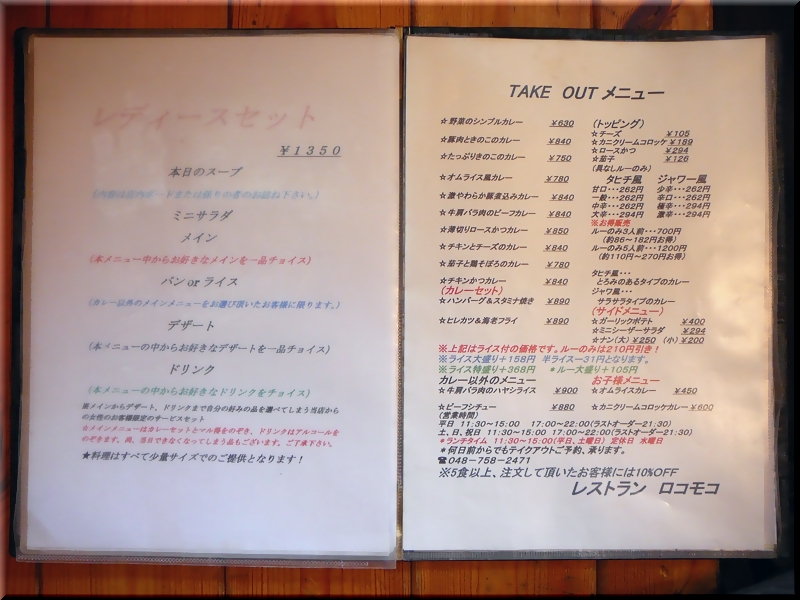 レディースセット
￥１３５０
本日のスープ
ミニサラダ
メイン
(本メニュー中からお好きなメインを一品チョイス)
パン or ライス
(カレー以外のメインメニューをお選び頂いたお客様に限ります。)
デザート
(本メニューの中からお好きなデザートを一品チョイス)
ドリンク
(本メニューの中からお好きなドリンクをチョイス)
※メインからデザート、ドリンクまで自分の好みの品を選べてしまう当店から
の女性のお客様限定のサービスセット
☆メインメニューはカレーセットとマル得をのぞき、ドリンクはアルコールを
のぞきます。尚、当日できなくなってしまう品もございます。ご了承下さい。
★料理はすべて少量サイズでのご提供となります！
TAKE OUT メニュー
☆野菜のシンプルカレー ￥630
☆豚肉ときのこのカレー ￥840
☆たっぷりきのこのカレー ￥750
☆オムライス風カレー ￥780
☆激やわらか豚煮込みカレー ￥840
☆牛肩バラ肉のビーフカレー ￥840
☆薄切りロースかつカレー ￥850
☆チキンとチーズのカレー ￥840
☆茄子と鶏そぼろのカレー ￥780
☆チキンかつカレー ￥840
(カレーセット)
☆ハンバーグ＆スタミナ焼き ￥890
☆ヒレカツ＆海老フライ ￥890
(トッピング)
☆チーズ ￥105
☆カニクリームコロッケ ￥189
☆ロースかつ ￥294
☆茄子 ￥126
(具なしルーのみ)
タヒチ風 ジャワー風
甘口・・・262円 少辛・・・262円
一般・・・262円 辛口・・・262円
中辛・・・262円 極辛・・・294円
大辛・・・294円 激辛・・・294円
※お得販売
ルーのみ3人前・・・700円
(約86～182円お得)
ルーのみ5人前・・・1200円
(約110円～270円お得)
タヒチ風・・・
とろみのあるタイプのカレー
ジャワ風・・・
サラサラタイプのカレー
(サイドメニュー)
☆ガーリックポテト ￥400
☆ミニシーザーサラダ ￥294
☆ナン(大) ￥250 (小) ￥200
※上記はライス付の価格です。ルーのみは210円引き！
※ライス大盛り＋158円 半ライス－31円となります。
※ライス特盛り＋368円 ＊ルー大盛り＋105円
カレー以外のメニュー お子様メニュー
☆牛肩バラ肉のハヤシライス ￥900 ☆オムライスカレー ￥450
☆ビーフシチュー ￥880 ☆カニクリームコロッケカレー ￥600
(営業時間)
平日 11:30～15:00 17:00～22:00(ラストオーダー21:30)
土、日、祝日 11:30～15:00 17:00～22:00(ラストオーダー21:30)
＊ランチタイム 11:30～15:00(平日、土曜日) 定休日 水曜日
＊何日前からでもテイクアウトご予約、承ります。
☎048-758-2471
※5食以上、注文して頂いたお客様には10%OFF
レストラン ロコモコ